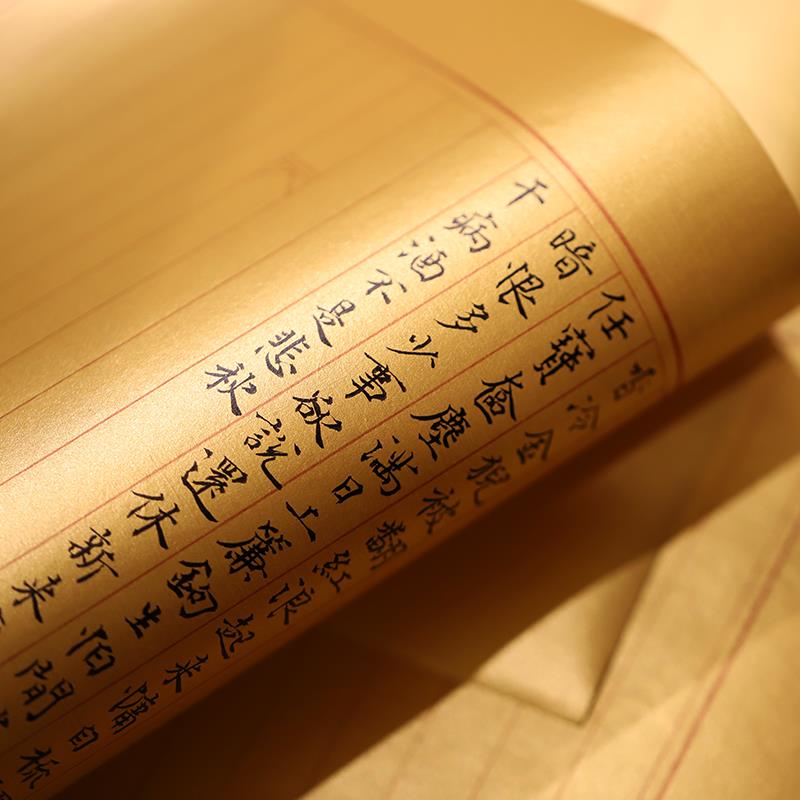 香冷金猊被翻紅浪起來慵自梳
任寶奩塵滿日上簾鉤生怕間
暗恨多少事欲說還休新來
干病酒不是悲秋